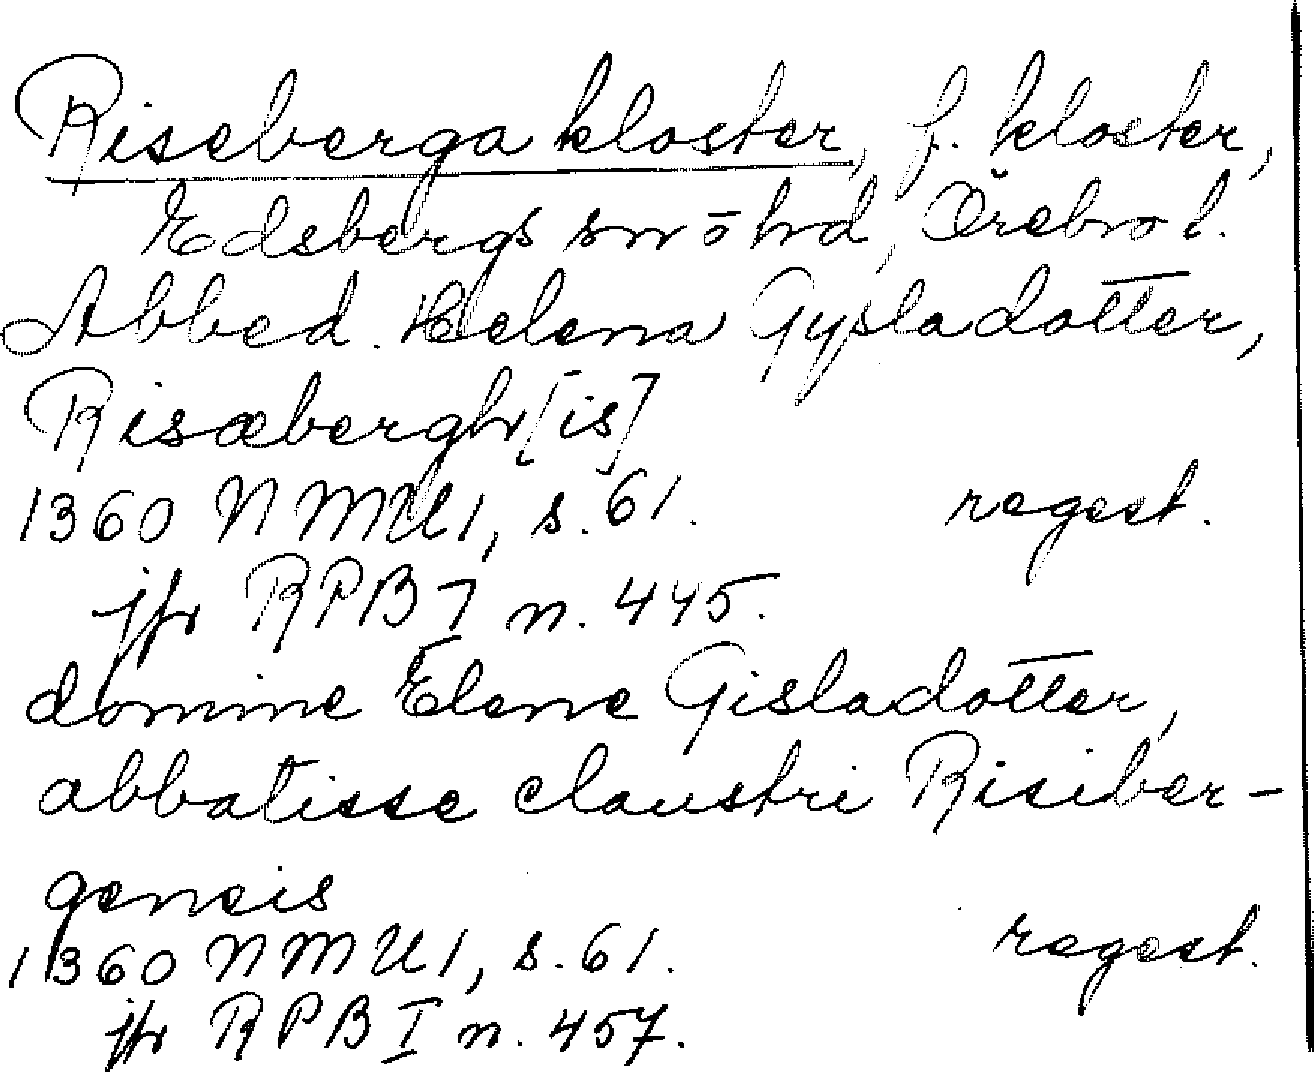 Riseberga kloster, f. kloster,
Edsbergs snöhd, Örebro l.
Abbed. Helena Gysladotter,
Risæbergh[is]
1360 NMU1, s. 61. regest.
jfr RPB I n. 445.
domine Elene Gisladotter,
abbatisse claustri Risiber-
gensis
1360 NMU1, s. 61. regest.
jfr RPB I n. 457.